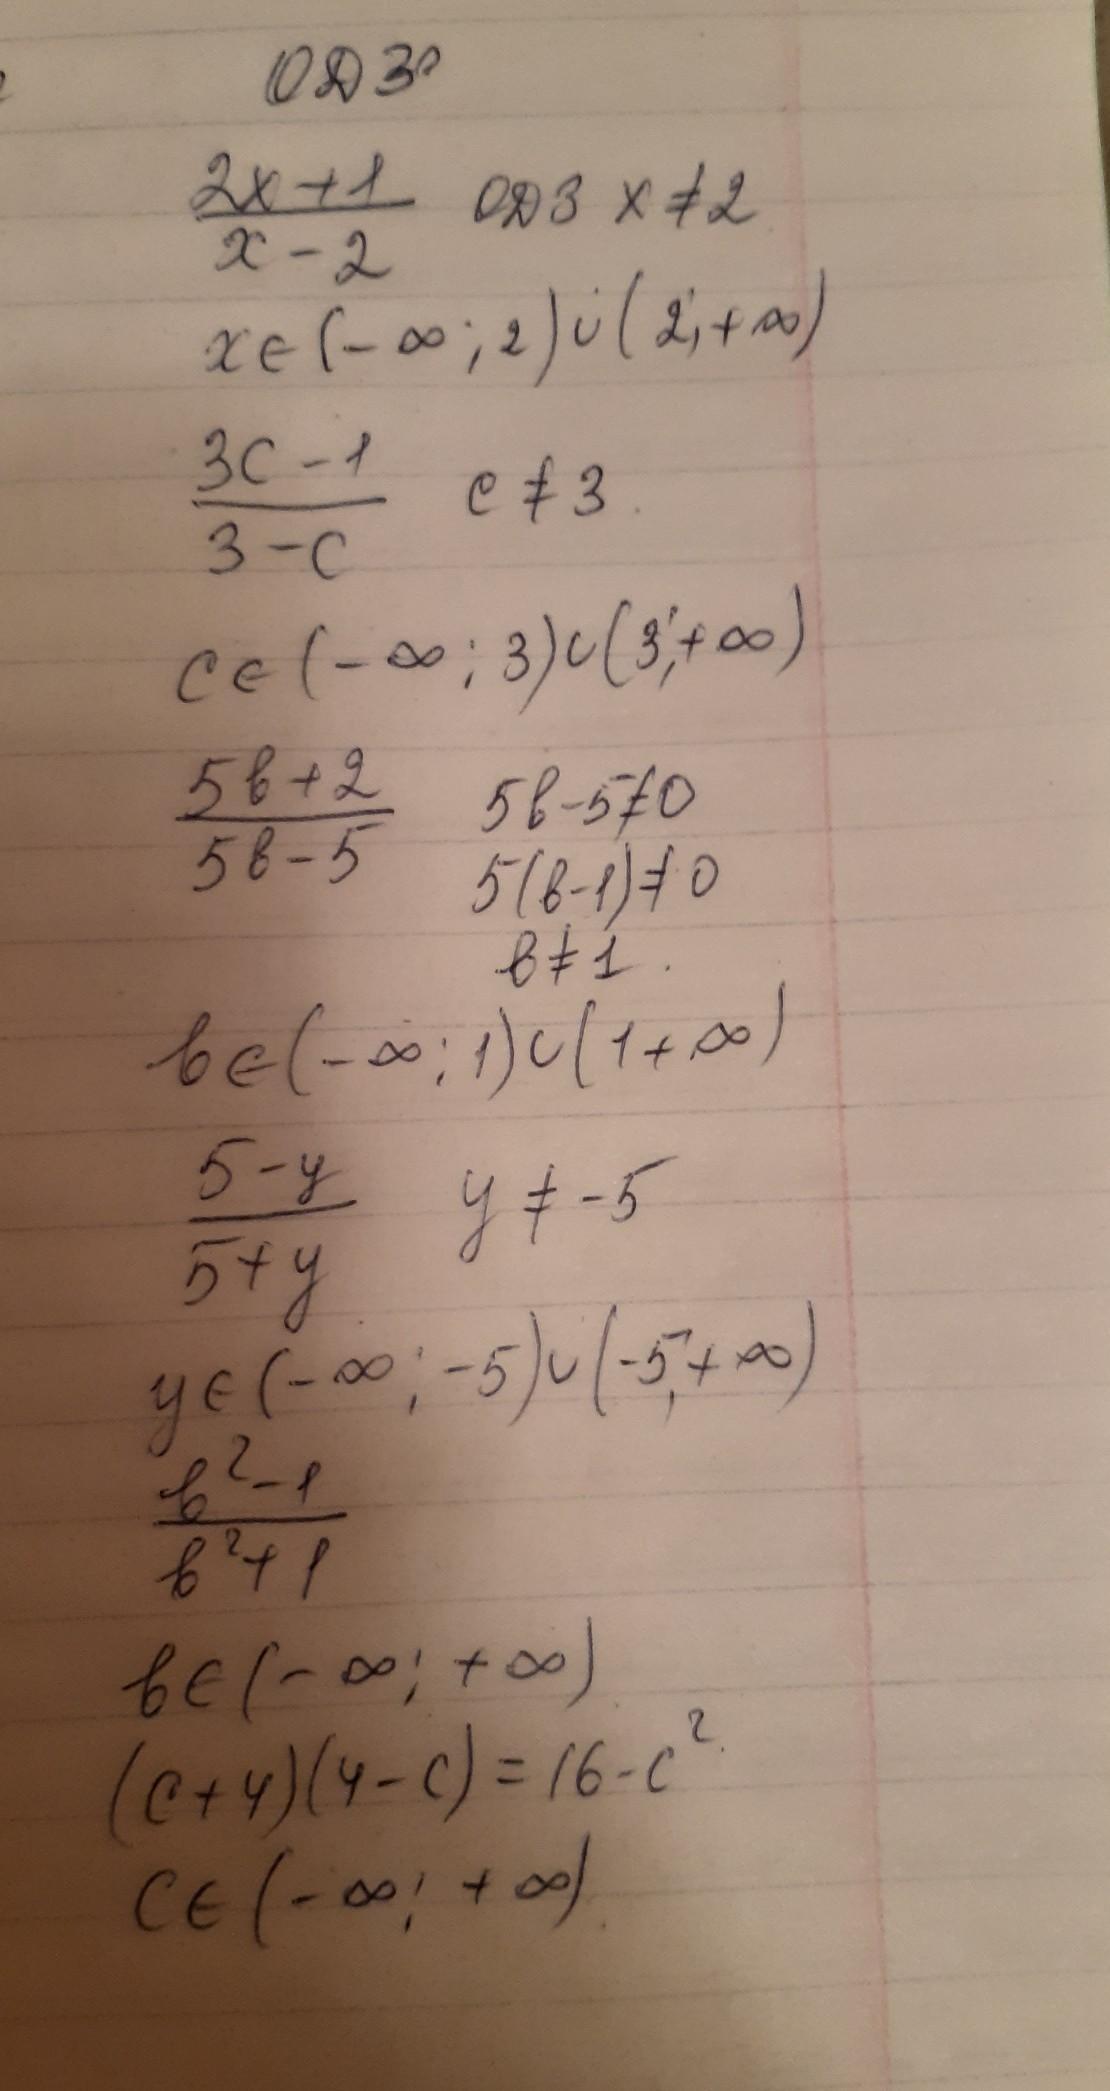 ОДЗ
2x+1 / x-2 ОДЗ x≠2
x∈(-∞;2)∪(2;+∞)
3c-1 / 3-c c≠3.
c∈(-∞;3)∪(3;+∞)
5b+2 / 5b-5 5b-5≠0
5(b-1)≠0
b≠1.
b∈(-∞;1)∪(1+∞)
5-y / 5+y y≠-5
y∈(-∞;-5)∪(-5;+∞)
b²-1 / b²+1
b∈(-∞;+∞)
(c+4)(4-c)=16-c².
c∈(-∞;+∞).